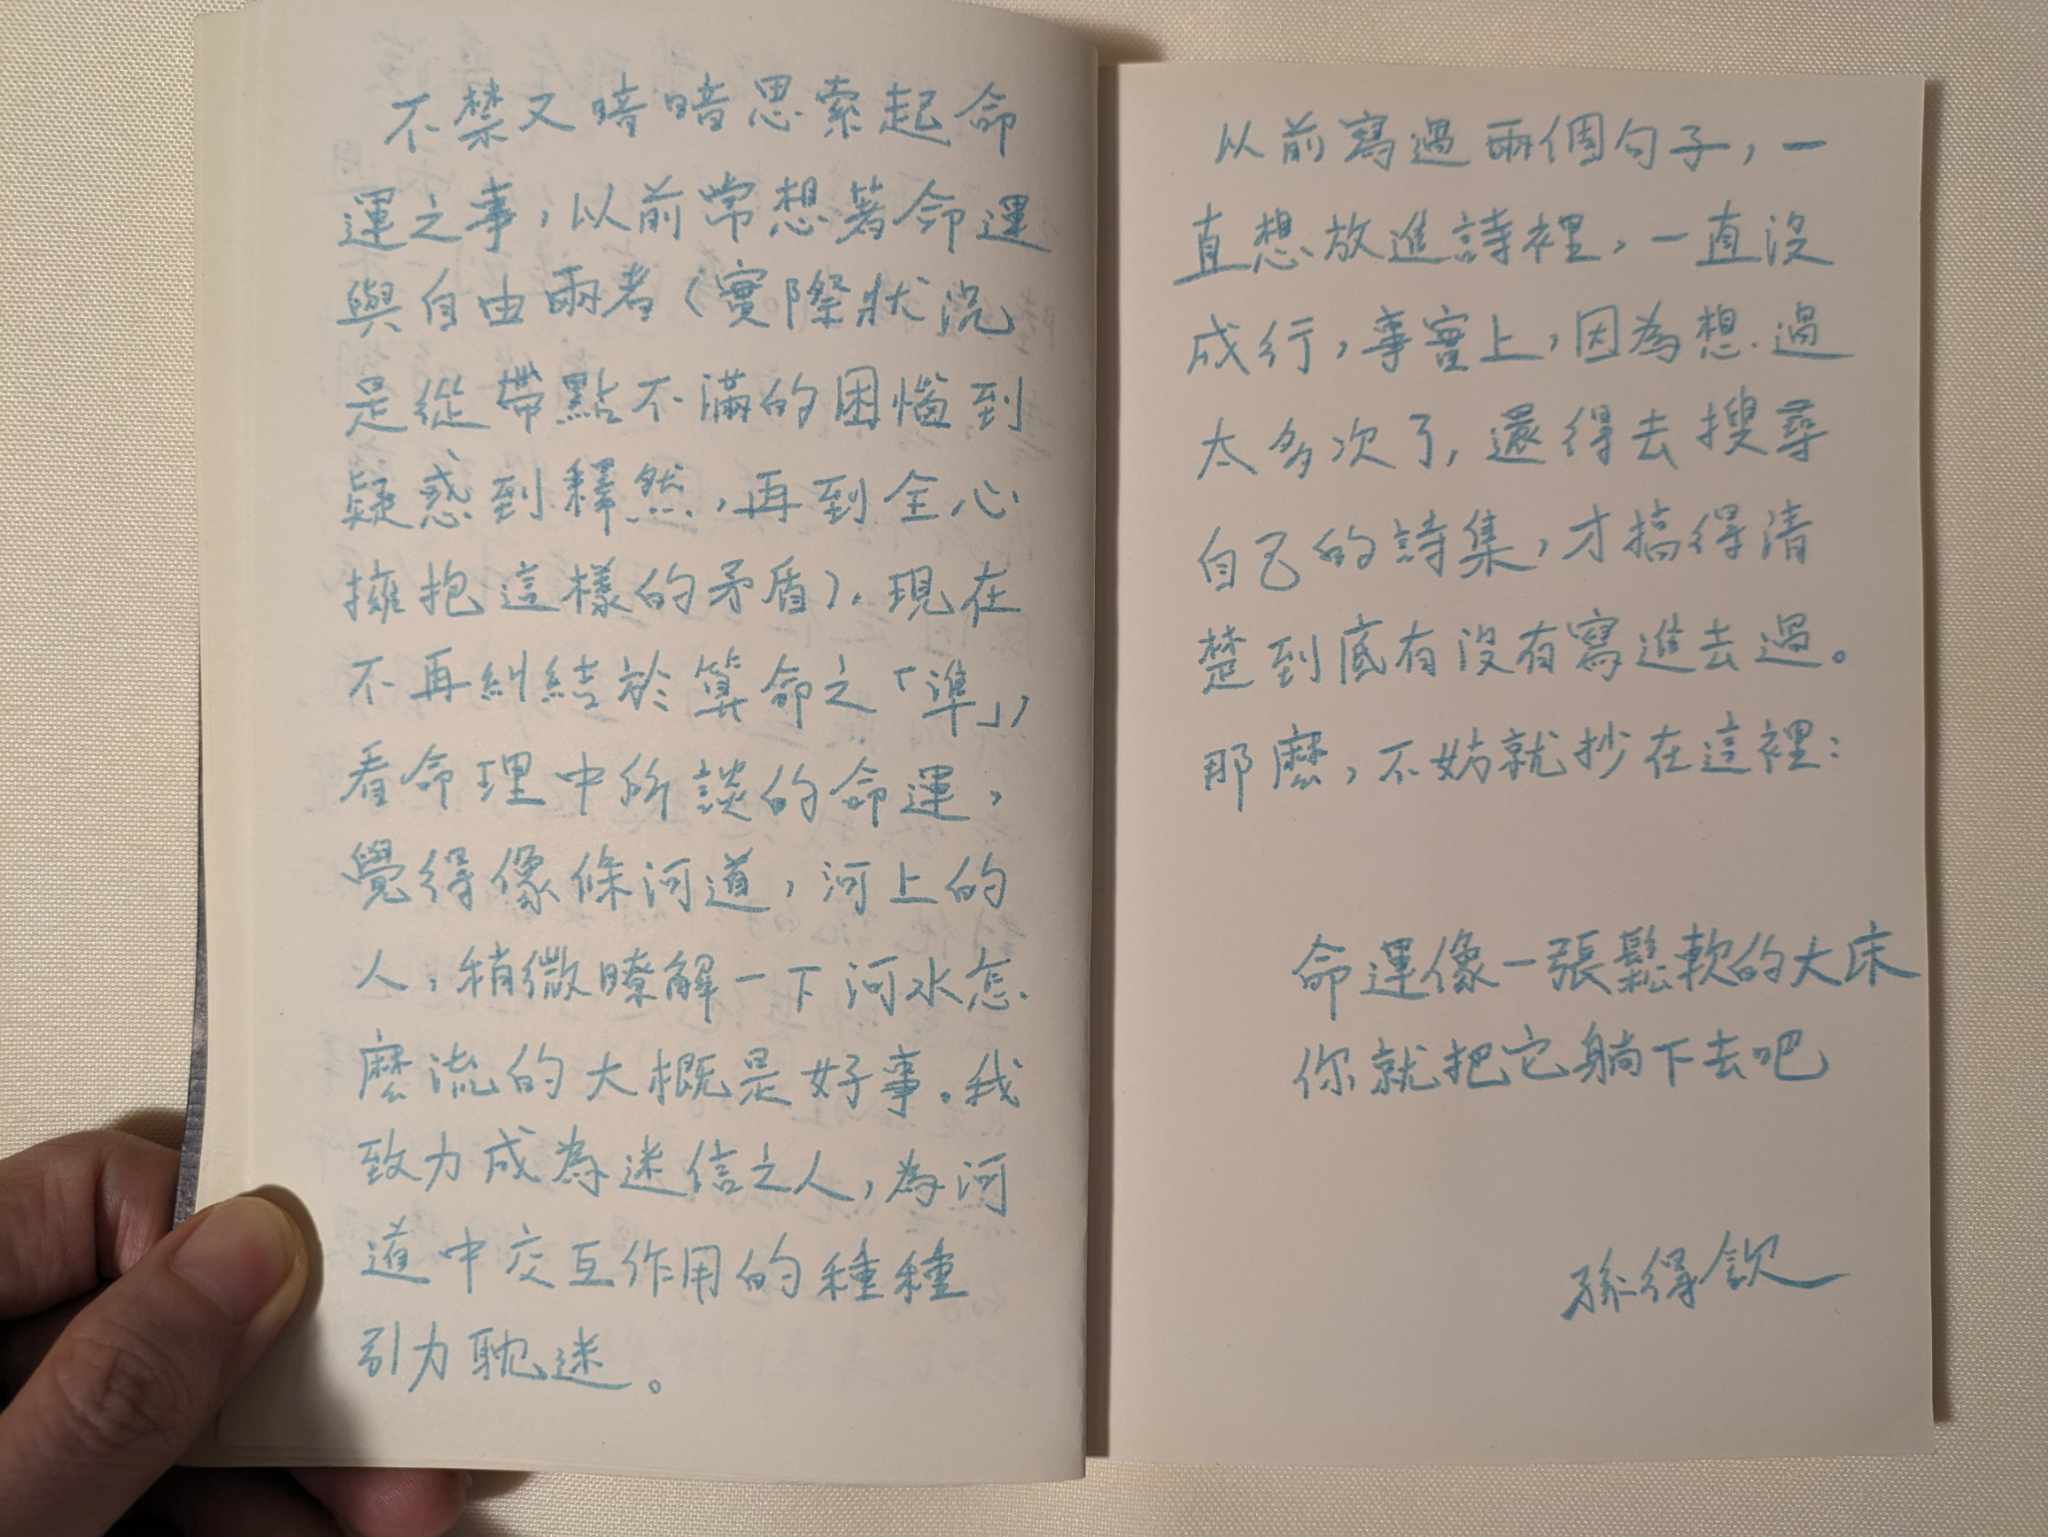 不禁又暗暗思索起命
運之事，以前常想著命運
與自由兩者（實際狀況
是從帶點不滿的困惱到
疑惑到釋然，再到全心
擁抱這樣的矛盾）。現在
不再糾結於算命之「準」，
看命理中所談的命運，
覺得像條河道，河上的
人，稍微瞭解一下河水怎
麼流的大概是好事。我
致力成為迷信之人，為河
道中交互作用的種種
引力耽迷。
以前寫過兩個句子，一
直想放進詩裡，一直沒
成行，事實上，因為想過
太多次了，還得去搜尋
自己的詩集，才搞得清
楚到底有沒有寫進去過。
那麼，不妨就抄在這裡：
命運像一張鬆軟的大床
你就把它躺下去吧
孫得欽